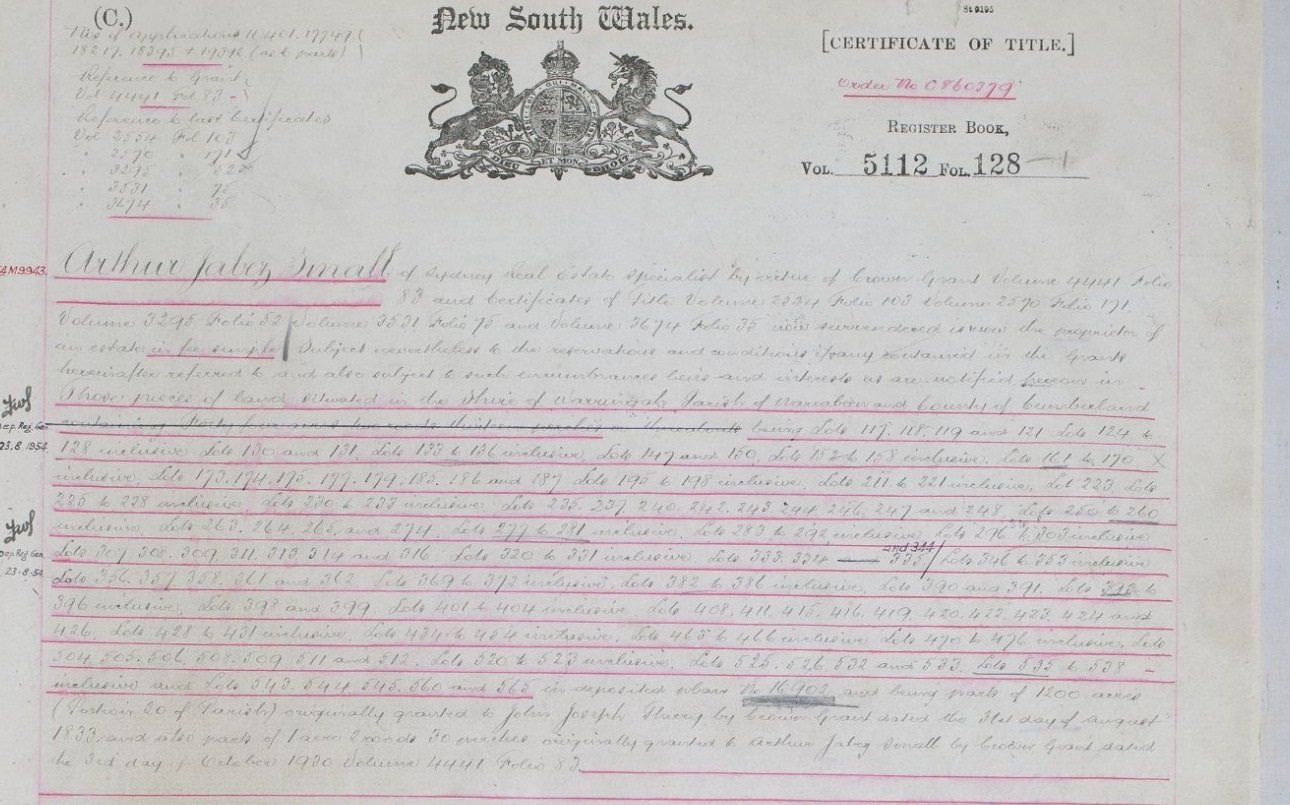 (C.)
New South Wales.
[CERTIFICATE OF TITLE.]
Nos of Applications 11401. 17749
18217. 18395 + 19392 (as to parts)
Order No C860379
Reference to Grant
Vol 4441 Fol 83
REGISTER BOOK,
Reference to last Certificates
Vol 2554 Fol 103
" 2570 " 171
VOL. 5112 FOL. 128
DIEU ET MON DROIT
" 3295 " 52
" 3531 " 75
" 3674 " 35
Arthur Jabez Small of Sydney Real Estate Specialist by virtue of Crown Grant Volume 4441 Folio
83 and Certificates of Title Volume 2554 Folio 103 Volume 2570 Folio 171
Volume 3295 Folio 52 Volume 3531 Folio 75 and Volume 3674 Folio 35 now surrendered is now the proprietor of
an estate in fee simple Subject nevertheless to the reservations and conditions if any contained in the Grants
hereinafter referred to and also subject to such incumbrances liens and interests as are notified hereon in
Those pieces of land situated in the Shire of Warringah Parish of Narrabeen and County of Cumberland
containing Forty four acres two roods thirteen perches or thereabouts being Lots 117. 118. 119 and 121. Lots 124 to
23.8.1954
128 inclusive Lots 130 and 131, Lots 133 to 136 inclusive, Lots 147 and 150, Lots 152 to 158 inclusive, Lots 161 to 170 X
inclusive, Lots 173. 174. 175. 177. 179. 185. 186 and 187 Lots 195 to 198 inclusive, Lots 211 to 221 inclusive, Lot 223, Lots
225 to 228 inclusive Lots 230 to 233 inclusive Lots 235. 237. 240. 242. 243. 244 246. 247 and 248, Lots 250 to 260
inclusive Lots 263. 264. 265. and 274. Lots 277 to 281 inclusive, Lots 283 to 292 inclusive Lots 296 to 303 inclusive
and 344
Lots 307. 308. 309. 311. 313. 314 and 316 Lots 320 to 331 inclusive Lots 333. 334 and 335 Lots 346 to 353 inclusive
Dep Reg Gen
23-8-54
Lots 356. 357. 358. 361 and 362 Lots 369 to 372 inclusive, Lots 382 to 386 inclusive, Lots 390 and 391. Lots 393 to
396 inclusive, Lots 398 and 399. Lots 401 to 404 inclusive Lots 408. 411. 415. 416. 419. 420. 422. 423. 424 and
426, Lots 428 to 431 inclusive, Lots 434 to 454 inclusive, Lots 463 to 466 inclusive Lots 470 to 476 inclusive, Lots
504. 505. 506. 508. 509 511 and 512. Lots 520 to 523 inclusive, Lots 525. 526. 532 and 533. Lots 535 to 538
inclusive and Lots 543. 544. 545. 560 and 565 in deposited plan No 16902 and being parts of 1200 acres
(Portion 20 of Parish) originally granted to John Joseph Therry by Crown Grant dated the 31st day of August
1833. and also parts of 1 acre 2 roods 30 perches originally granted to Arthur Jabez Small by Crown Grant dated
the 3rd day of October 1930 Volume 4441 Folio 83.